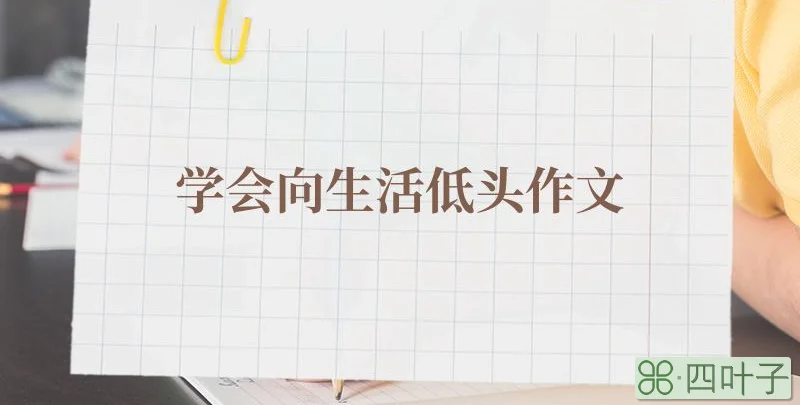 学会向生活低头作文
四叶子